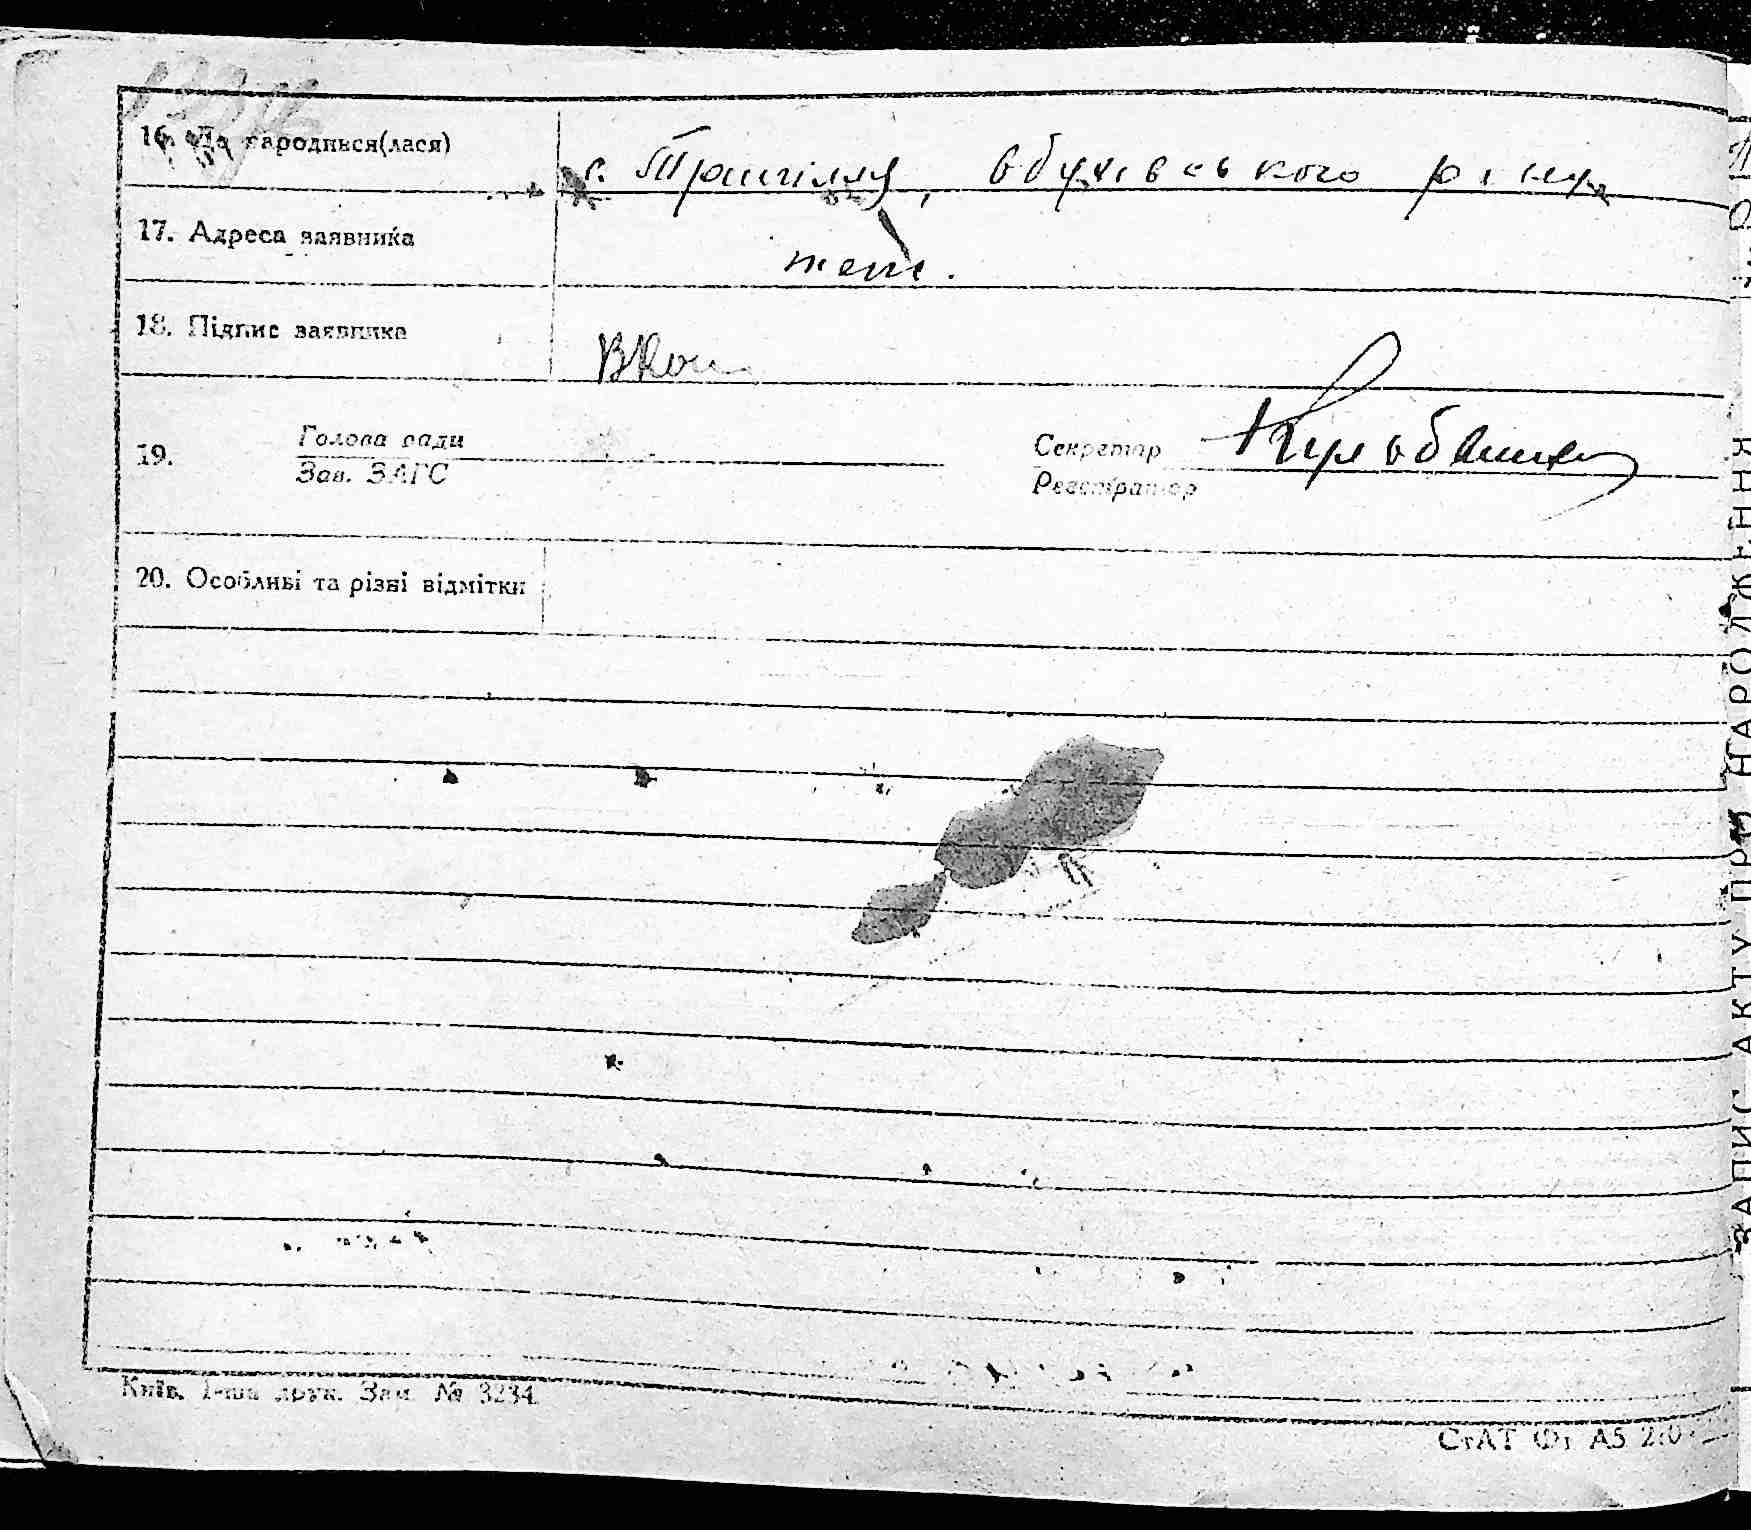 16. Де народився(лася)
с. Трипілля, Обухівського р-ну
17. Адреса заявника
теж.
18. Підпис заявника
19. Голова ради
Зав. ЗАГС
Секретар
Реєстратор
20. Особливі та різні відмітки
Київ. 1-ша друк. Зам. № 3234
СтАТ Фт А5
ЗАПИС АКТУ ПРО НАРОДЖЕННЯ